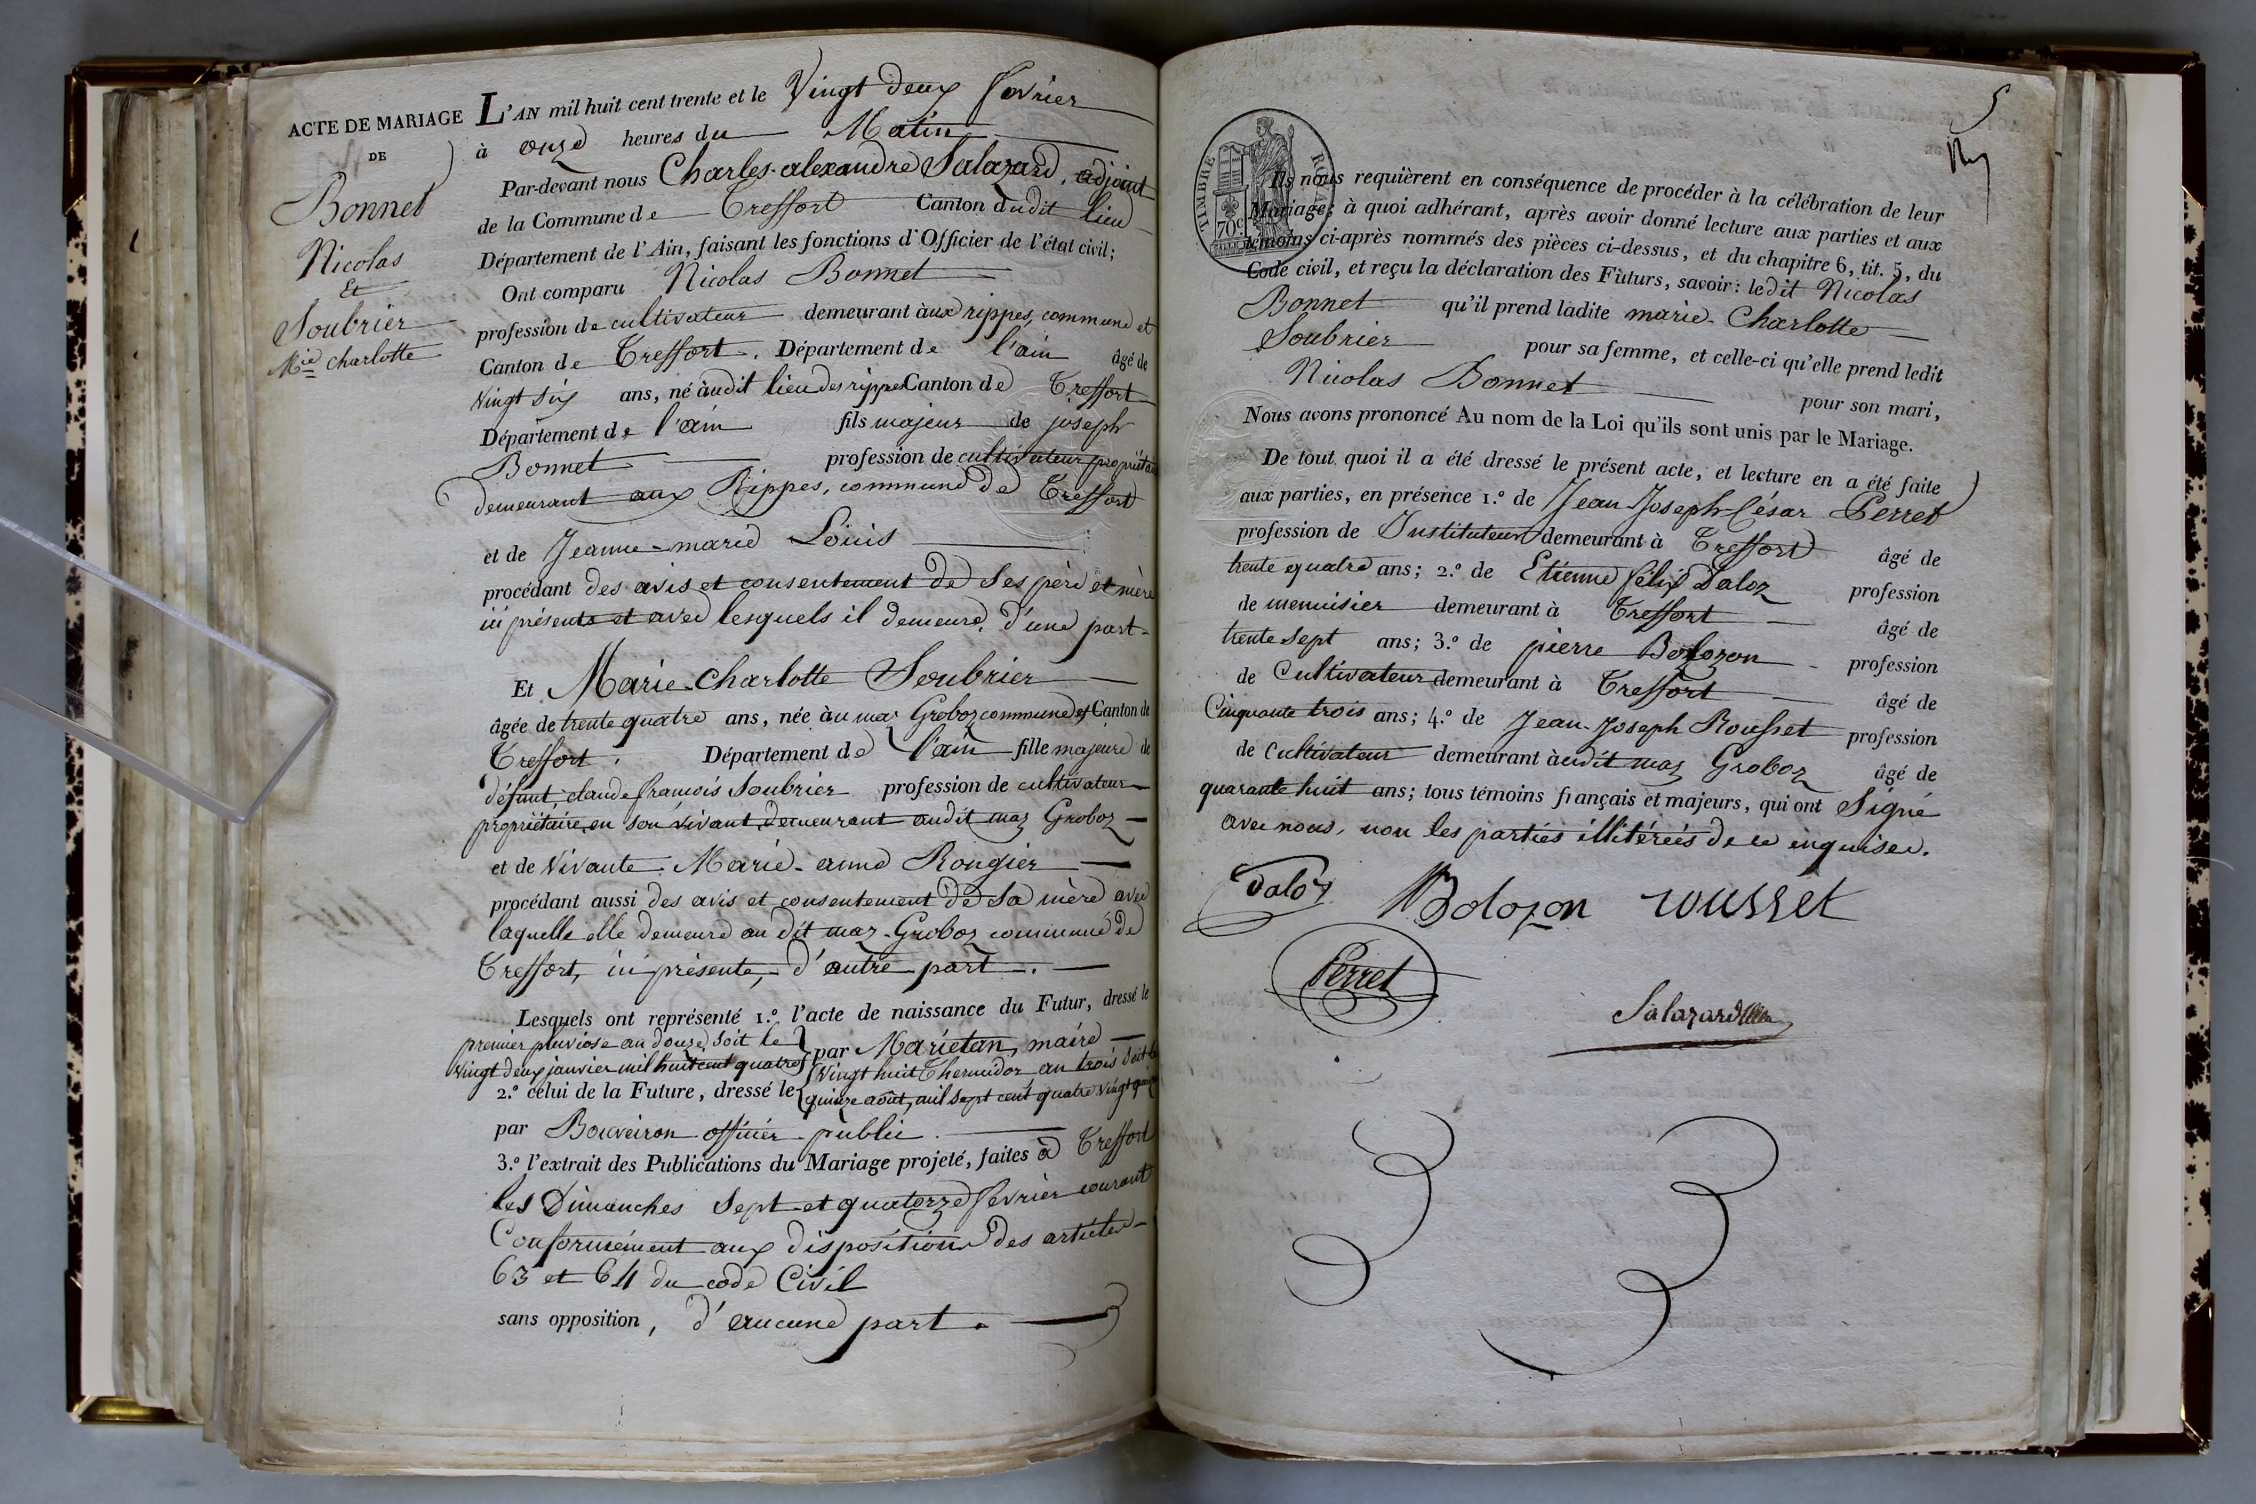 ACTE DE MARIAGE
DE
Bonnet
Nicolas
Et
Soubrier
Mie charlotte
L'AN mil huit cent trente et le Vingt deux fevrier
à onze heures du Matin
Par-devant nous Charles-alexandre Salazard, adjoint
de la Commune de Treffort Canton dudit lieu
Département de l'Ain, faisant les fonctions d'Officier de l'état civil;
Ont comparu Nicolas Bonnet
profession de cultivateur demeurant àux rippes, commune et
Canton de Treffort. Département de l'ain âgé de
vingt six ans, né àudit lieu des rippes Canton de Treffort
Département de l'ain fils majeur de joseph
Bonnet profession de cultivateur propriétaire
demeurant aux Rippes, commune de Treffort
et de Jeanne-marie Louis
procédant des avis et consentement de ses père et mère
ici présents et avec lesquels il demeure, d'une part-
Et Marie-Charlotte Soubrier
âgée de trente quatre ans, née àu mas Groboz commune et Canton de
Treffort. Département de l'ain fille majeure de
défunt, claude françois Soubrier profession de cultivateur
propriétaire en son vivant, demeurant audit mas Groboz
et de vivante Marie-anne Rongier
procédant aussi des avis et consentement de sa mère avec
laquelle elle demeure au dit mas-Groboz commune de
Treffort, ici présente, d'autre part.
Lesquels ont représenté 1.° l'acte de naissance du Futur, dressé le
premier pluviose an douze, soit le
vingt deux janvier mil huit cent quatre par Mariétan, maire
2.° celui de la Future, dressé le vingt huit Thermidor an trois soit le
quinze août, mil sept cent quatre vingt quinze
par Bouveiron officier public
3.° l'extrait des Publications du Mariage projeté, faites à Treffort
les Dimanches sept et quatorze fevrier courant
Conformément aux dispositions des articles
63 et 64 du code Civil
sans opposition, d'aucune part.
5
TIMBRE ROYAL
70c
Ils nous requièrent en conséquence de procéder à la célébration de leur
Mariage; à quoi adhérant, après avoir donné lecture aux parties et aux
témoins ci-après nommés des pièces ci-dessus, et du chapitre 6, tit. 5, du
Code civil, et reçu la déclaration des Futurs, savoir: ledit Nicolas
Bonnet qu'il prend ladite marie-Charlotte
Soubrier pour sa femme, et celle-ci qu'elle prend ledit
Nicolas Bonnet pour son mari,
Nous avons prononcé Au nom de la Loi qu'ils sont unis par le Mariage.
De tout quoi il a été dressé le présent acte, et lecture en a été faite
aux parties, en présence 1.° de Jean-Joseph-César Perret
profession de Instituteur demeurant à Treffort âgé de
trente quatre ans; 2.° de Etienne félix Daloz profession
de menuisier demeurant à Treffort âgé de
trente sept ans; 3.° de pierre Bolozon profession
de Cultivateur demeurant à Treffort âgé de
Cinquante trois ans; 4.° de Jean-Joseph Rousset profession
de Cultivateur demeurant àudit mas Groboz âgé de
quarante huit ans; tous témoins français et majeurs, qui ont Signé
avec nous, non les parties illitérées de ce enquises.
Daloz Bolozon rousset
Perret
Salazard